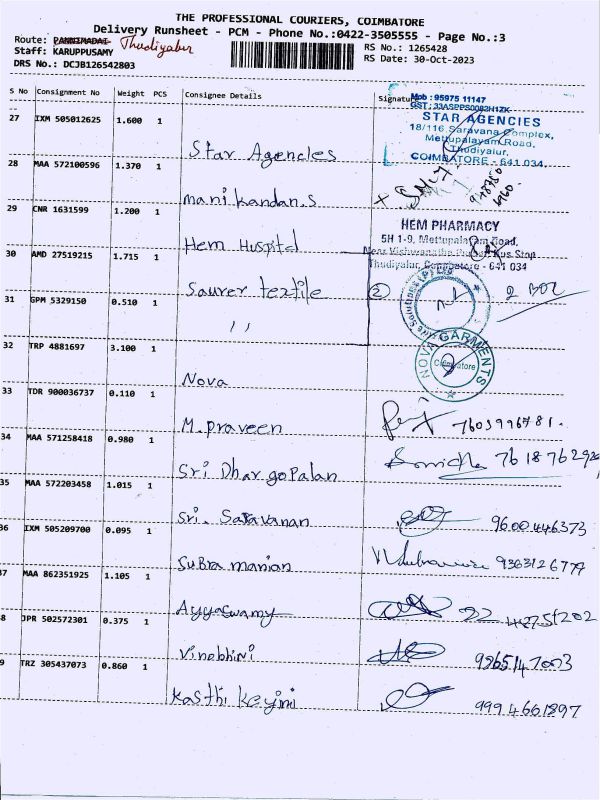 THE PROFESSIONAL COURIERS, COIMBATORE
Delivery Runsheet - PCM - Phone No.:0422-3505555 - Page No.:3
Route: PANNIMADAI Thudiyalur
RS No.: 1265428
Staff: KARUPPUSAMY
RS Date: 30-Oct-2023
DRS No.: DCJB126542803
S No Consignment No Weight PCS Consignee Details Signature
Mob : 95975 11147
STAR AGENCIES
18/116, Saravana Complex,
Mettupalayam Road,
Thudiyalur,
COIMBATORE - 641 034.
27 IXM 505012625 1.600 1 Star Agencies
28 MAA 572100596 1.370 1 manikandan.s
29 CNR 1631599 1.200 1 Hem Hospital
HEM PHARMACY
5H 1-9, Mettupalayam Road,
Thudiyalur, Coimbatore - 641 034
30 AMD 27519215 1.715 1 Saurer textile
2
31 GPM 5329150 0.510 1 ,,
32 TRP 4881697 3.100 1 Nova
NOVA GARMENTS
Coimbatore
33 TDR 900036737 0.110 1 M.praveen
34 MAA 571258418 0.980 1 Sri Dhar gopalan
35 MAA 572203458 1.015 1 Sri. Saravanan 9600446373
36 IXM 505209700 0.095 1 Subramanian
7 MAA 862351925 1.105 1 Ayyaswamy
8 JPR 502572301 0.375 1 Vinobhini
9 TRZ 305437073 0.860 1 9994661897